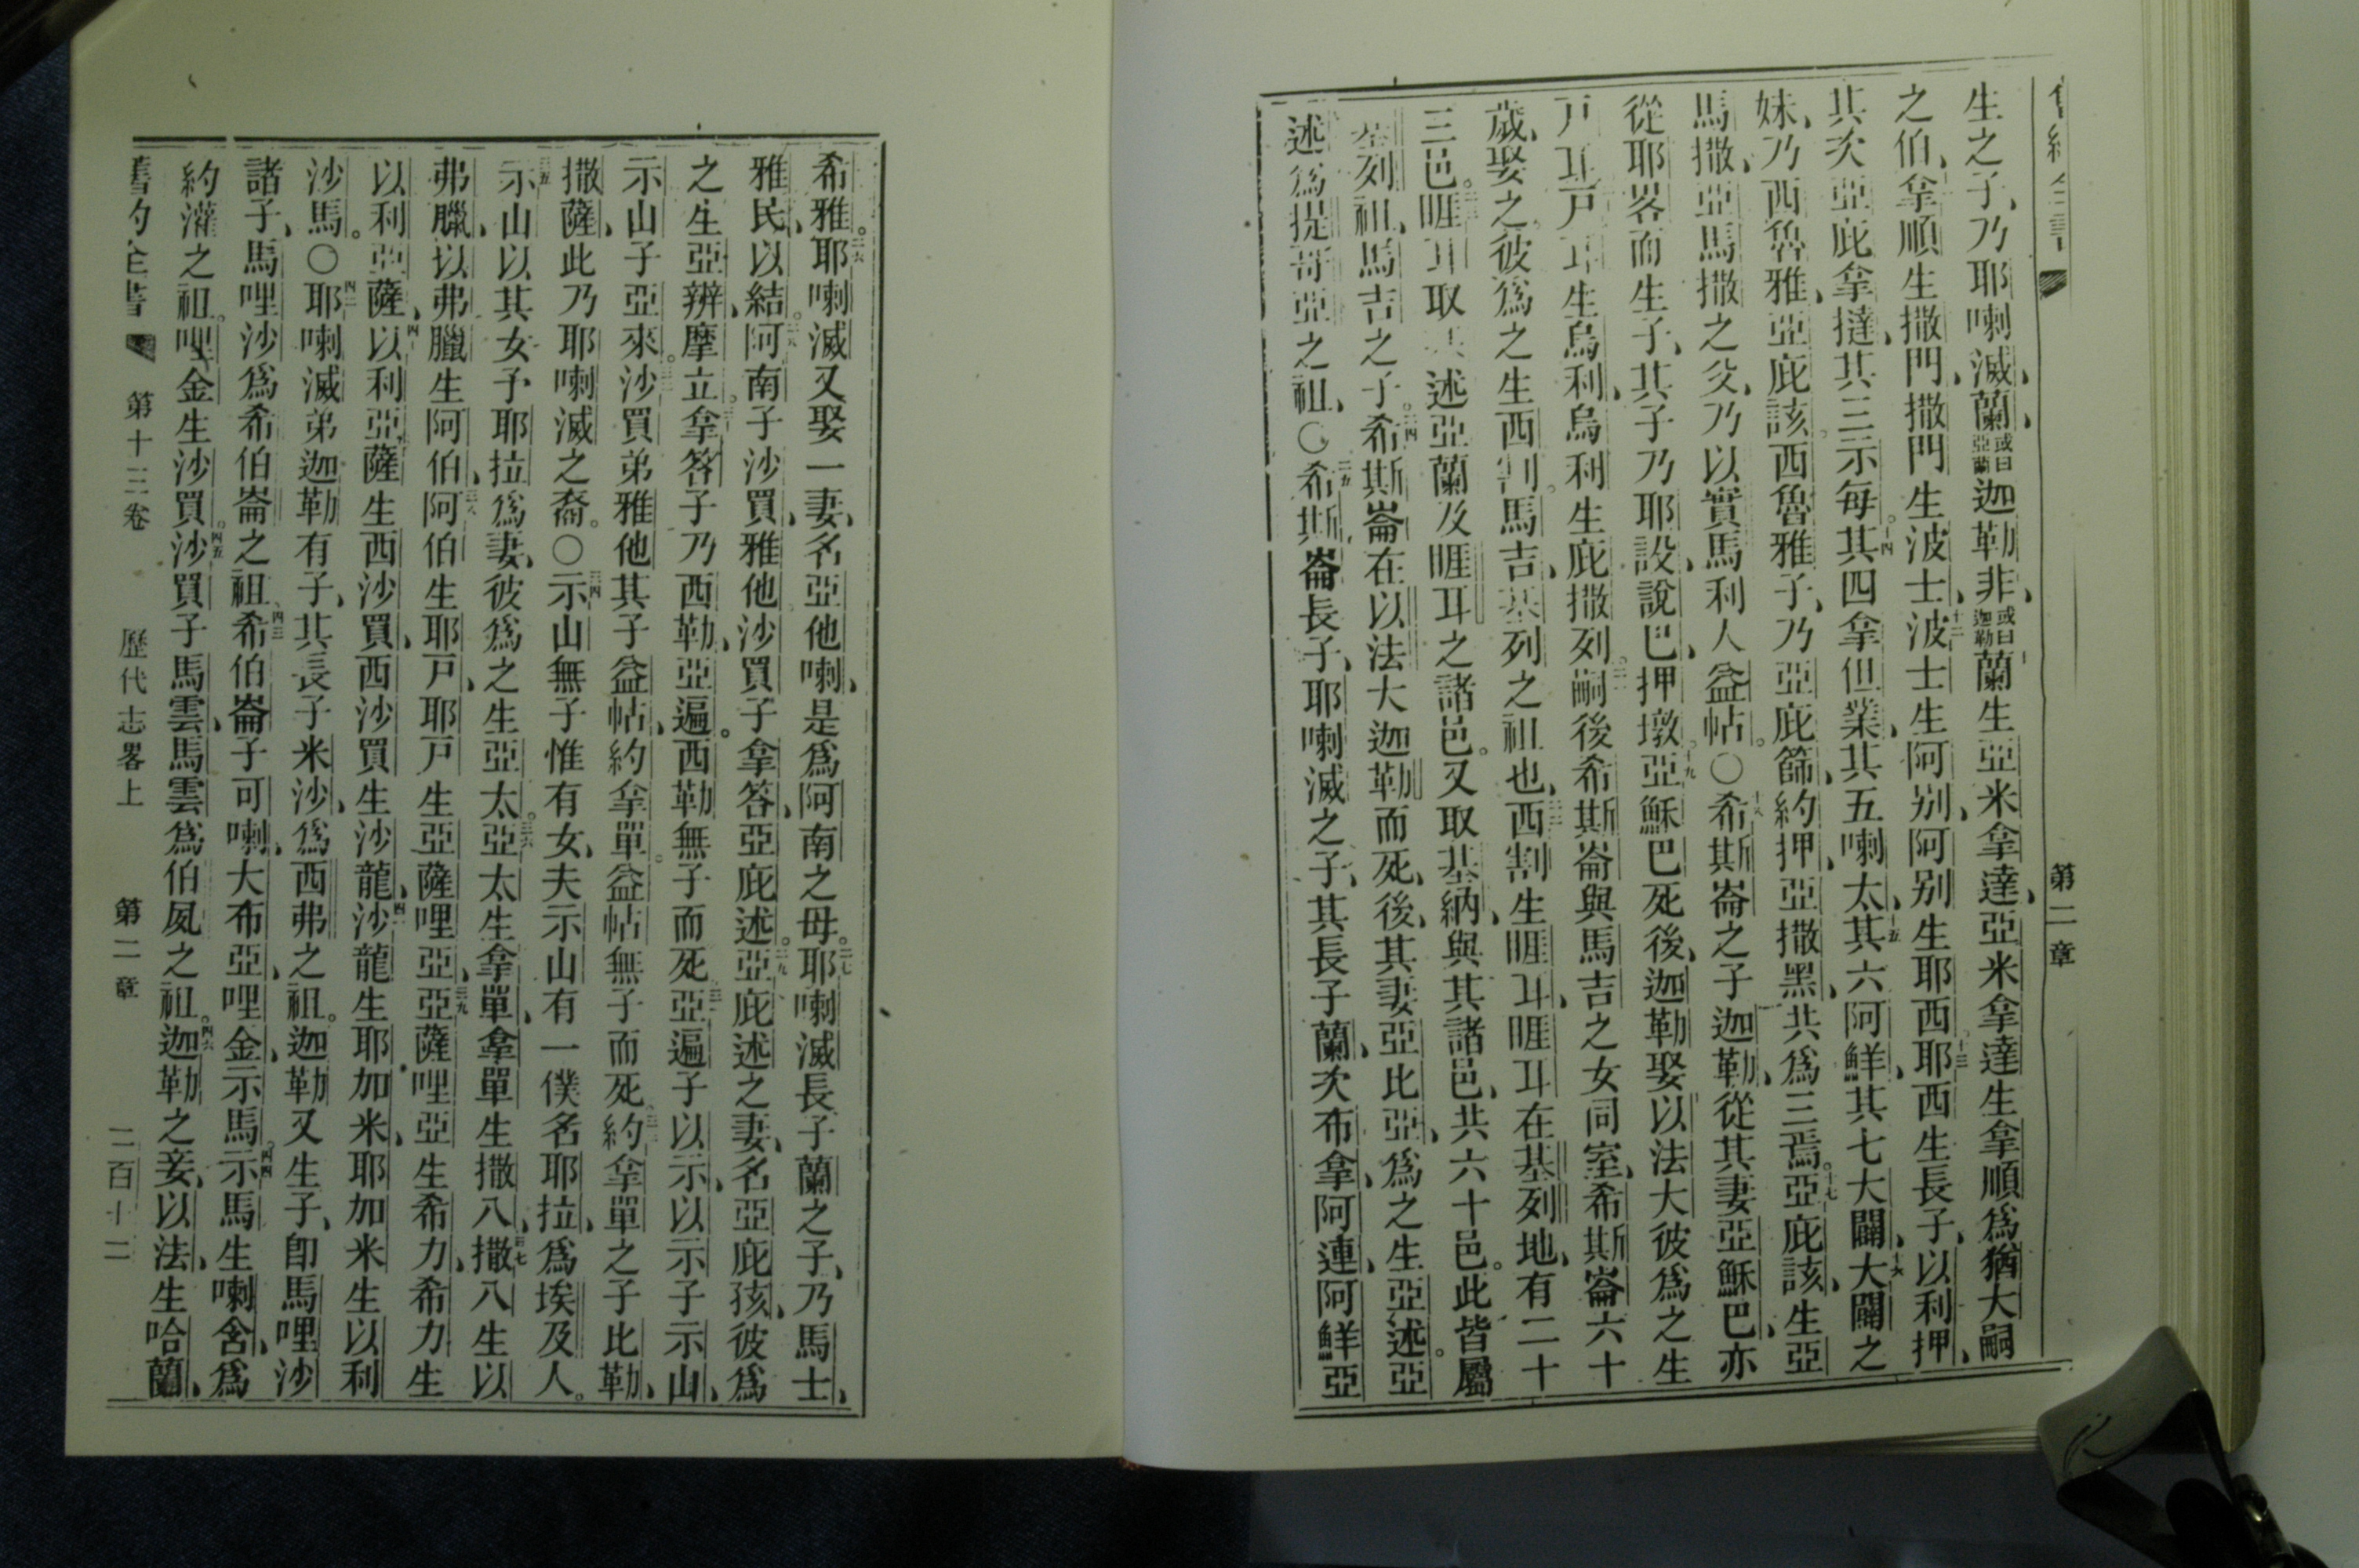 第二章
生之子、乃耶喇滅、蘭、或曰亞蘭迦勒非、或曰迦勒蘭生亞米拿達、亞米拿達生拿順、爲猶大嗣
之伯、拿順生撒門、撒門生波士、十二波士生阿別、阿別生耶西、十三耶西生長子、以利押、
其次亞庇拿撻、其三示每。十四其四拿但業、其五喇太、十五其六阿鮮、其七大闢、十六大闢之
妹、乃西魯雅、亞庇該。西魯雅子、乃亞庇篩、約押、亞撒黑、共爲三焉。十七亞庇該、生亞
馬撒、亞馬撒之父、乃以實馬利人益帖。〇十八希斯崙之子迦勒、從其妻亞穌巴、亦
從耶畧而生子、其子乃耶設、說巴、押墩。十九亞穌巴死後、迦勒娶以法大彼爲之生
戶耳戶耳生烏利、烏利生庇撒列。嗣後希斯崙與馬吉之女同室、希斯崙六十
歲、娶之。彼爲之生西割。馬吉、基列之祖也、西割生睚耳、睚耳在基列地、有二十
三邑。睚耳取述亞蘭及睚耳之諸邑。又取基納、與其諸邑、共六十邑。此皆屬
基列祖、馬吉之子。二四希斯崙在以法大迦勒而死、後、其妻亞比亞、爲之生亞述。亞
述爲提哥亞之祖、〇二五希斯崙長子、耶喇滅之子、其長子蘭、次布拿、阿連、阿鮮亞
希雅。二六耶喇滅又娶一妻、名亞他喇、是爲阿南之母。二七耶喇滅長子蘭之子、乃馬士、
雅民、以結。二八阿南子沙買、雅他沙買子拿答、亞庇述。二九亞庇述之妻、名亞庇孩、彼爲
之生亞辨、摩立。拿答子乃西勒、亞遍。西勒無子而死亞遍子以示、以示子示山、
示山子亞來。沙買弟雅他其子益帖、約拿單。益帖無子而死約拿單之子比勒、
撒薩、此乃耶喇滅之裔。〇三四示山無子惟有女、夫示山有一僕名耶拉、爲埃及人。
三五示山以其女予耶拉爲妻、彼爲之生亞太。三六亞太生拿單、拿單生撒八、三七撒八生以
弗臘、以弗臘生阿伯、三八阿伯生耶戶、耶戶生亞薩哩亞、三九亞薩哩亞生希力、希力生
以利亞薩、四十以利亞薩生西沙買、西沙買生沙龍、四一沙龍生耶加米、耶加米生以利
沙馬。〇四二耶喇滅弟迦勒有子、其長子米沙、爲西弗之祖。迦勒又生子、卽馬哩沙
諸子、馬哩沙爲希伯崙之祖、四三希伯崙子可喇、大布亞、哩金、示馬。四四示馬生喇含、爲
約灌之祖。哩金生沙買。四五沙買子馬雲、馬雲爲伯夙之祖。四六迦勒之妾、以法、生哈蘭、
舊約全書 第十三卷 歷代志畧上 第二章 二百十二